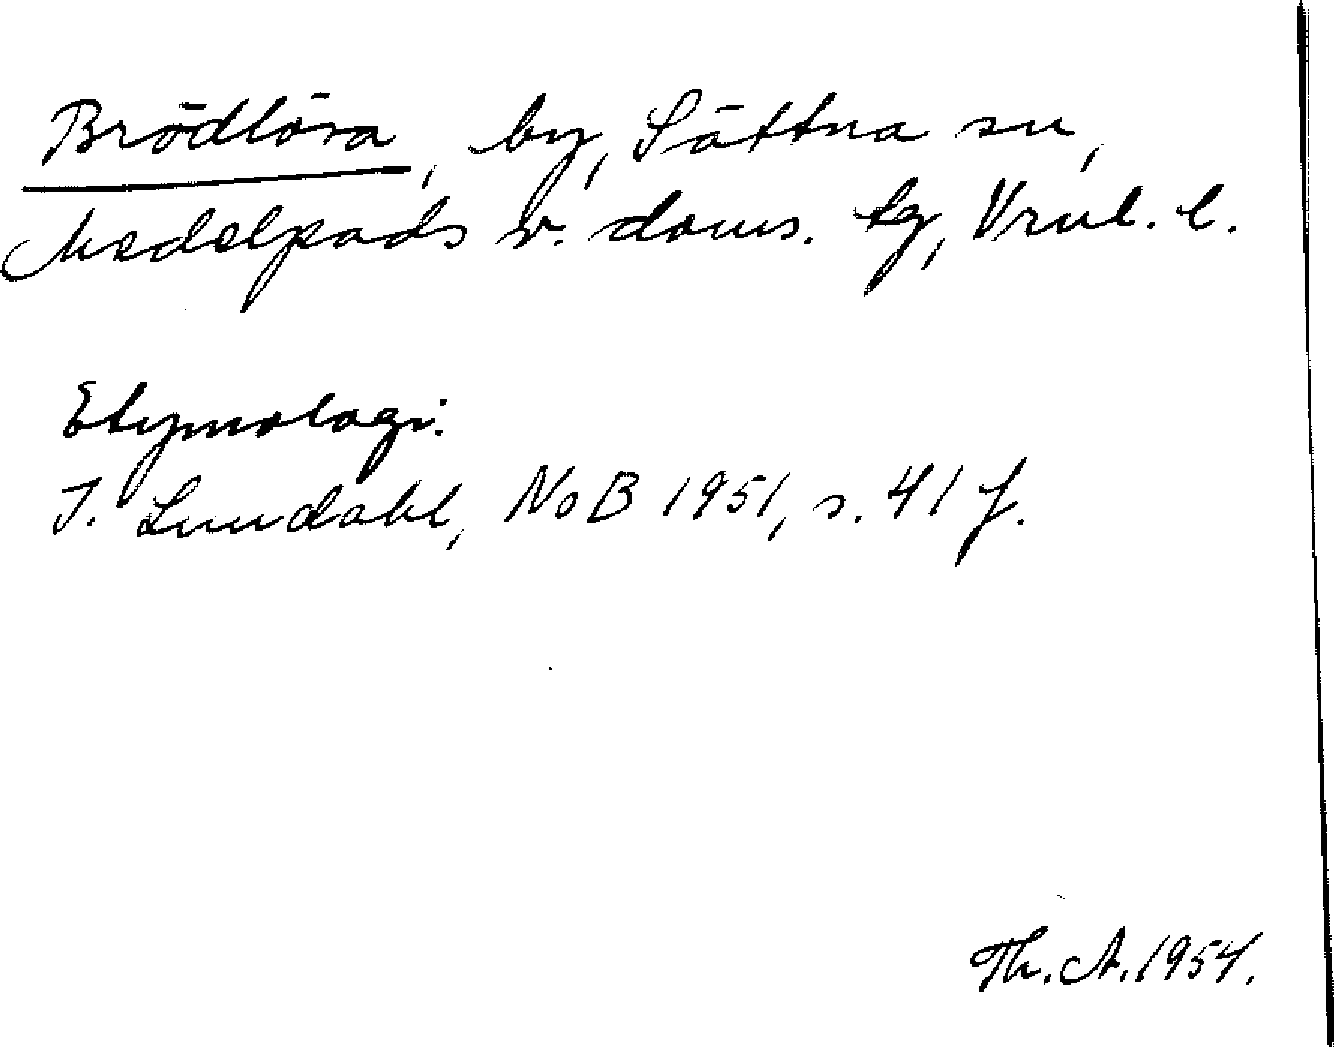 Brödlösa, by, Sättna sn,
Medelpads v. doms. tg, Vrnl. l.
Etymologi:
I. Lundahl, NoB 1951, s. 41 f.
Th. A. 1954.